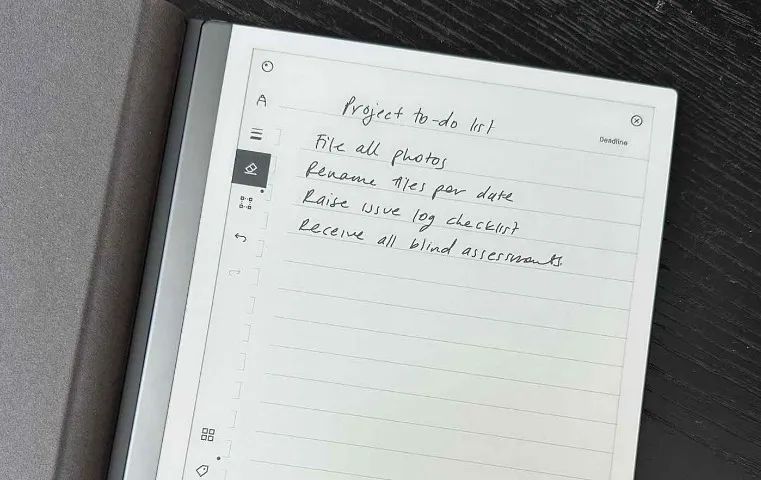 Project to-do list
Deadline
File all photos
Rename files per date
Raise issue log checklist
Receive all blind assessments